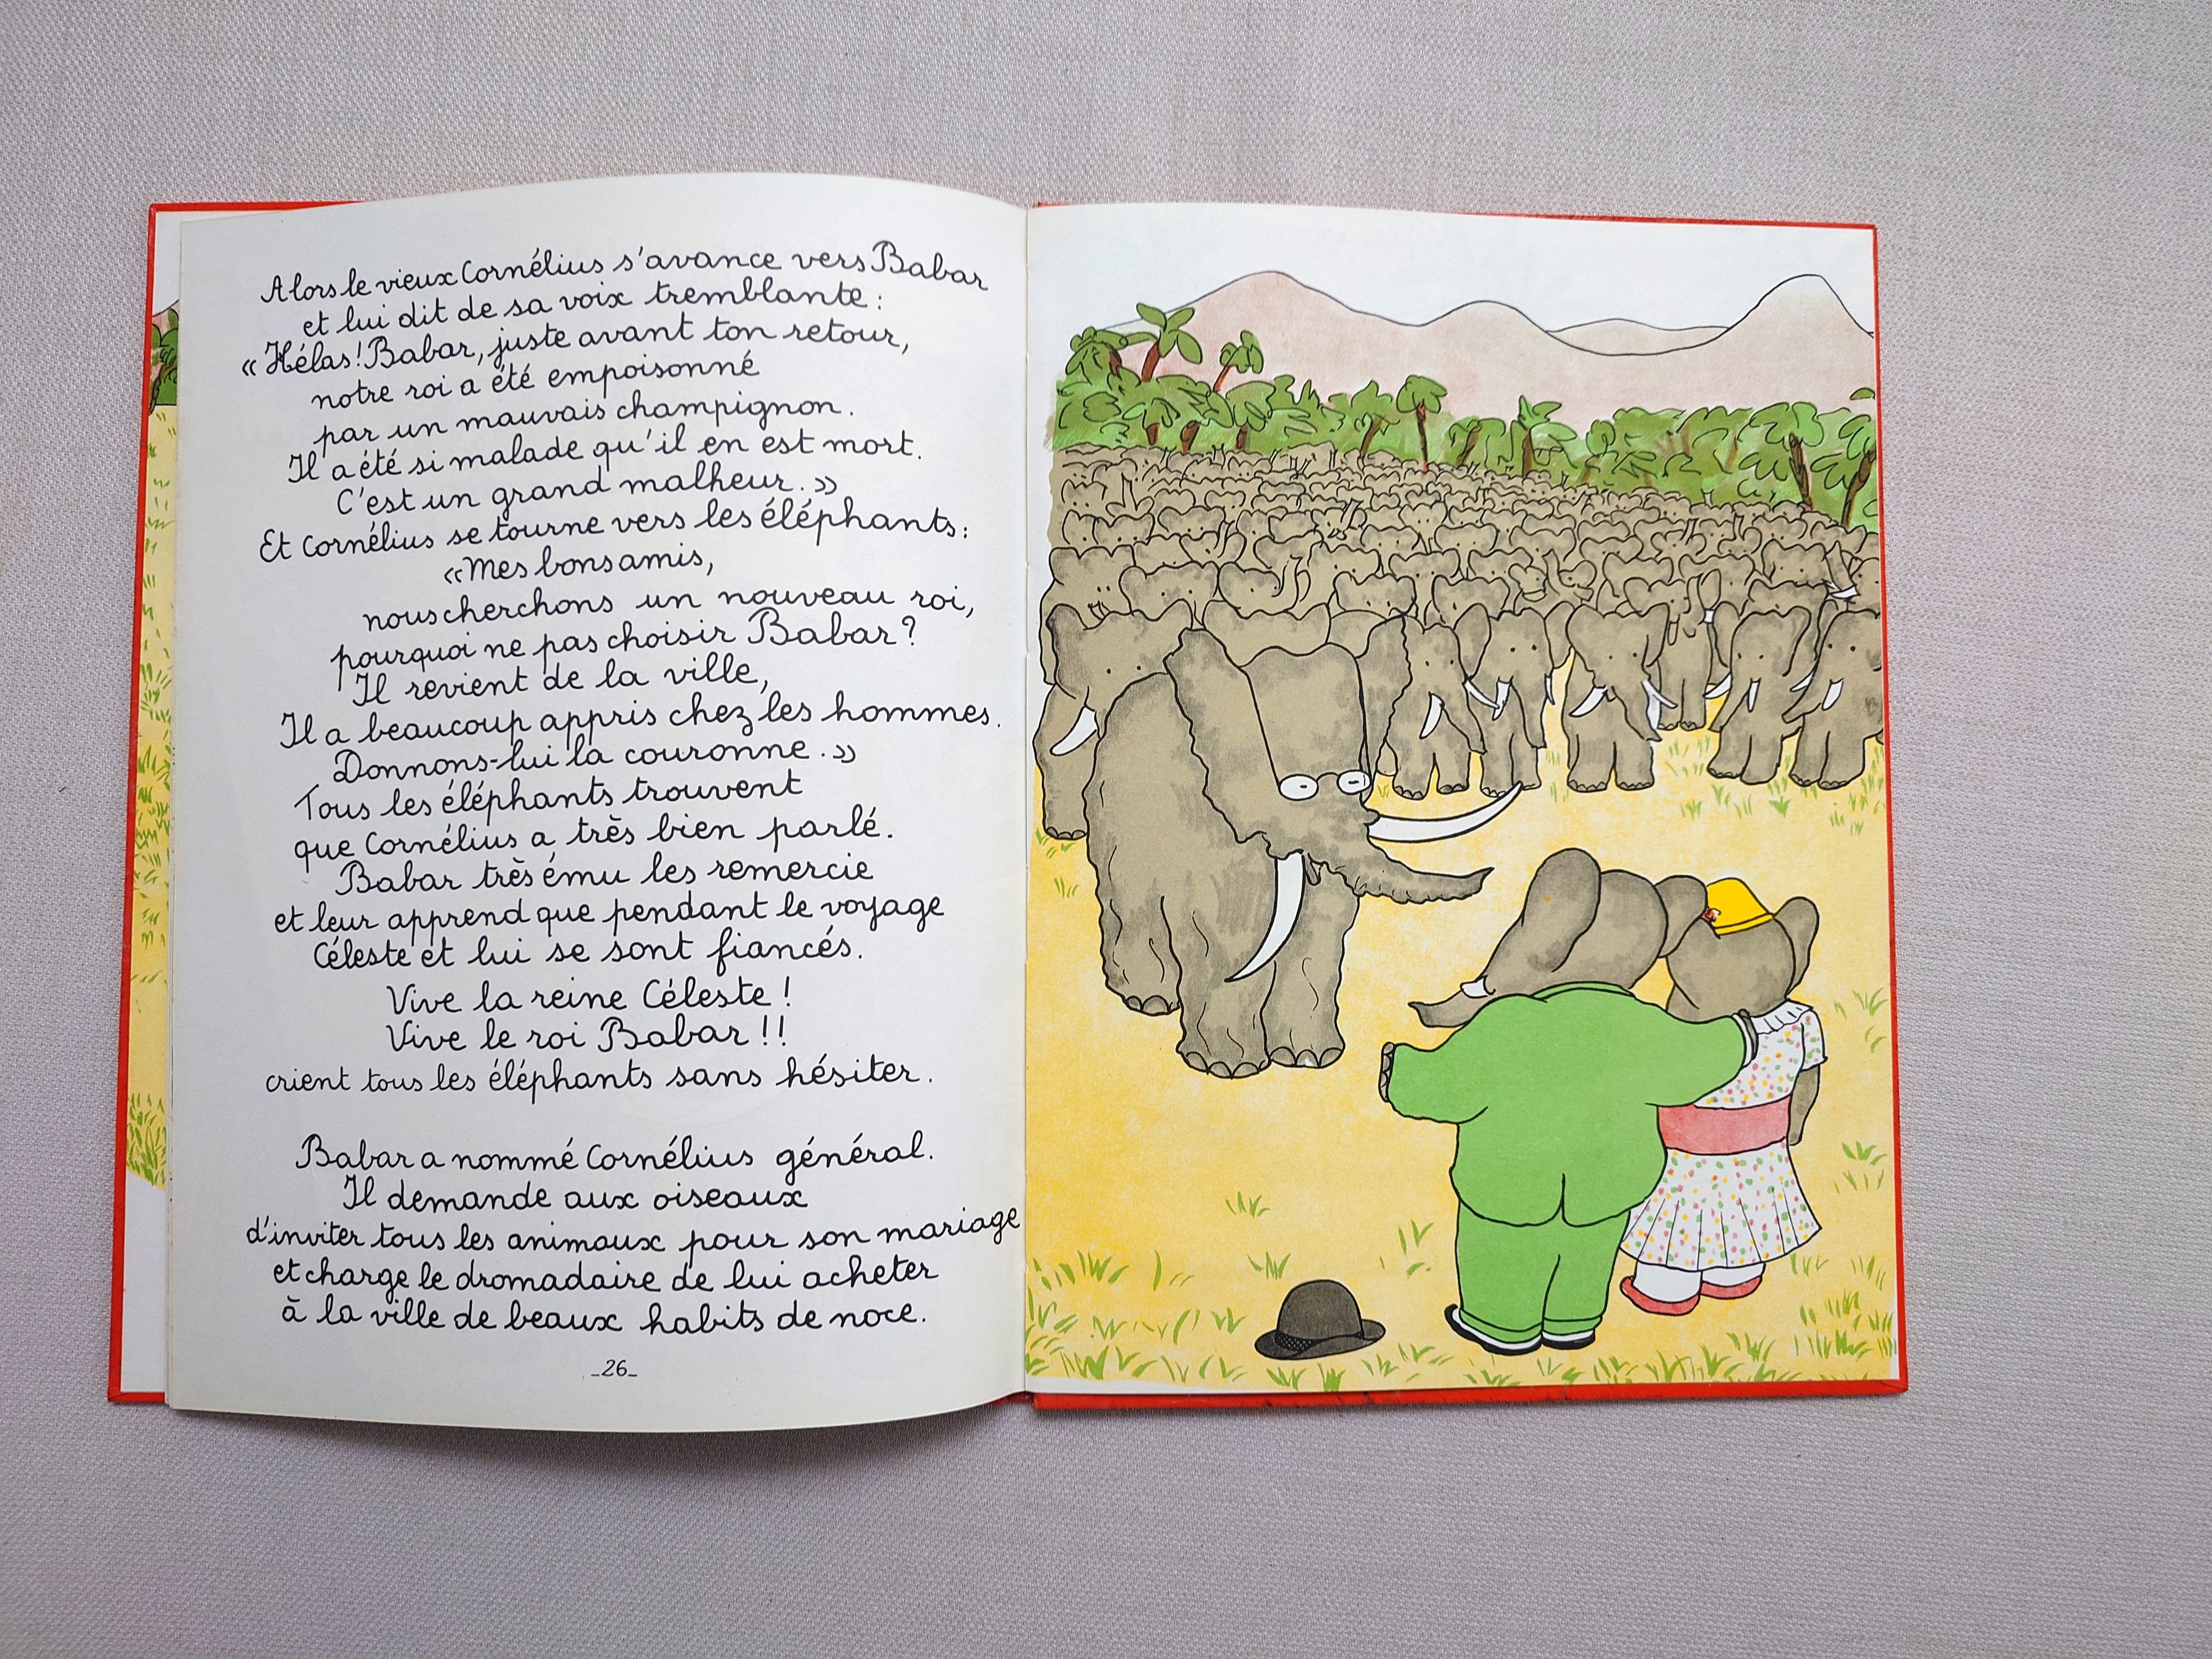 Alors le vieux Cornélius s'avance vers Babar
et lui dit de sa voix tremblante :
« Hélas ! Babar, juste avant ton retour,
notre roi a été empoisonné
par un mauvais champignon.
Il a été si malade qu'il en est mort.
C'est un grand malheur. »
Et Cornélius se tourne vers les éléphants :
« Mes bons amis,
nous cherchons un nouveau roi,
pourquoi ne pas choisir Babar ?
Il revient de la ville,
Il a beaucoup appris chez les hommes.
Donnons-lui la couronne. »
Tous les éléphants trouvent
que Cornélius a très bien parlé.
Babar très ému les remercie
et leur apprend que pendant le voyage
Céleste et lui se sont fiancés.
Vive la reine Céleste !
Vive le roi Babar !!
crient tous les éléphants sans hésiter.
Babar a nommé Cornélius général.
Il demande aux oiseaux
d'inviter tous les animaux pour son mariage
et charge le dromadaire de lui acheter
à la ville de beaux habits de noce.
_26_